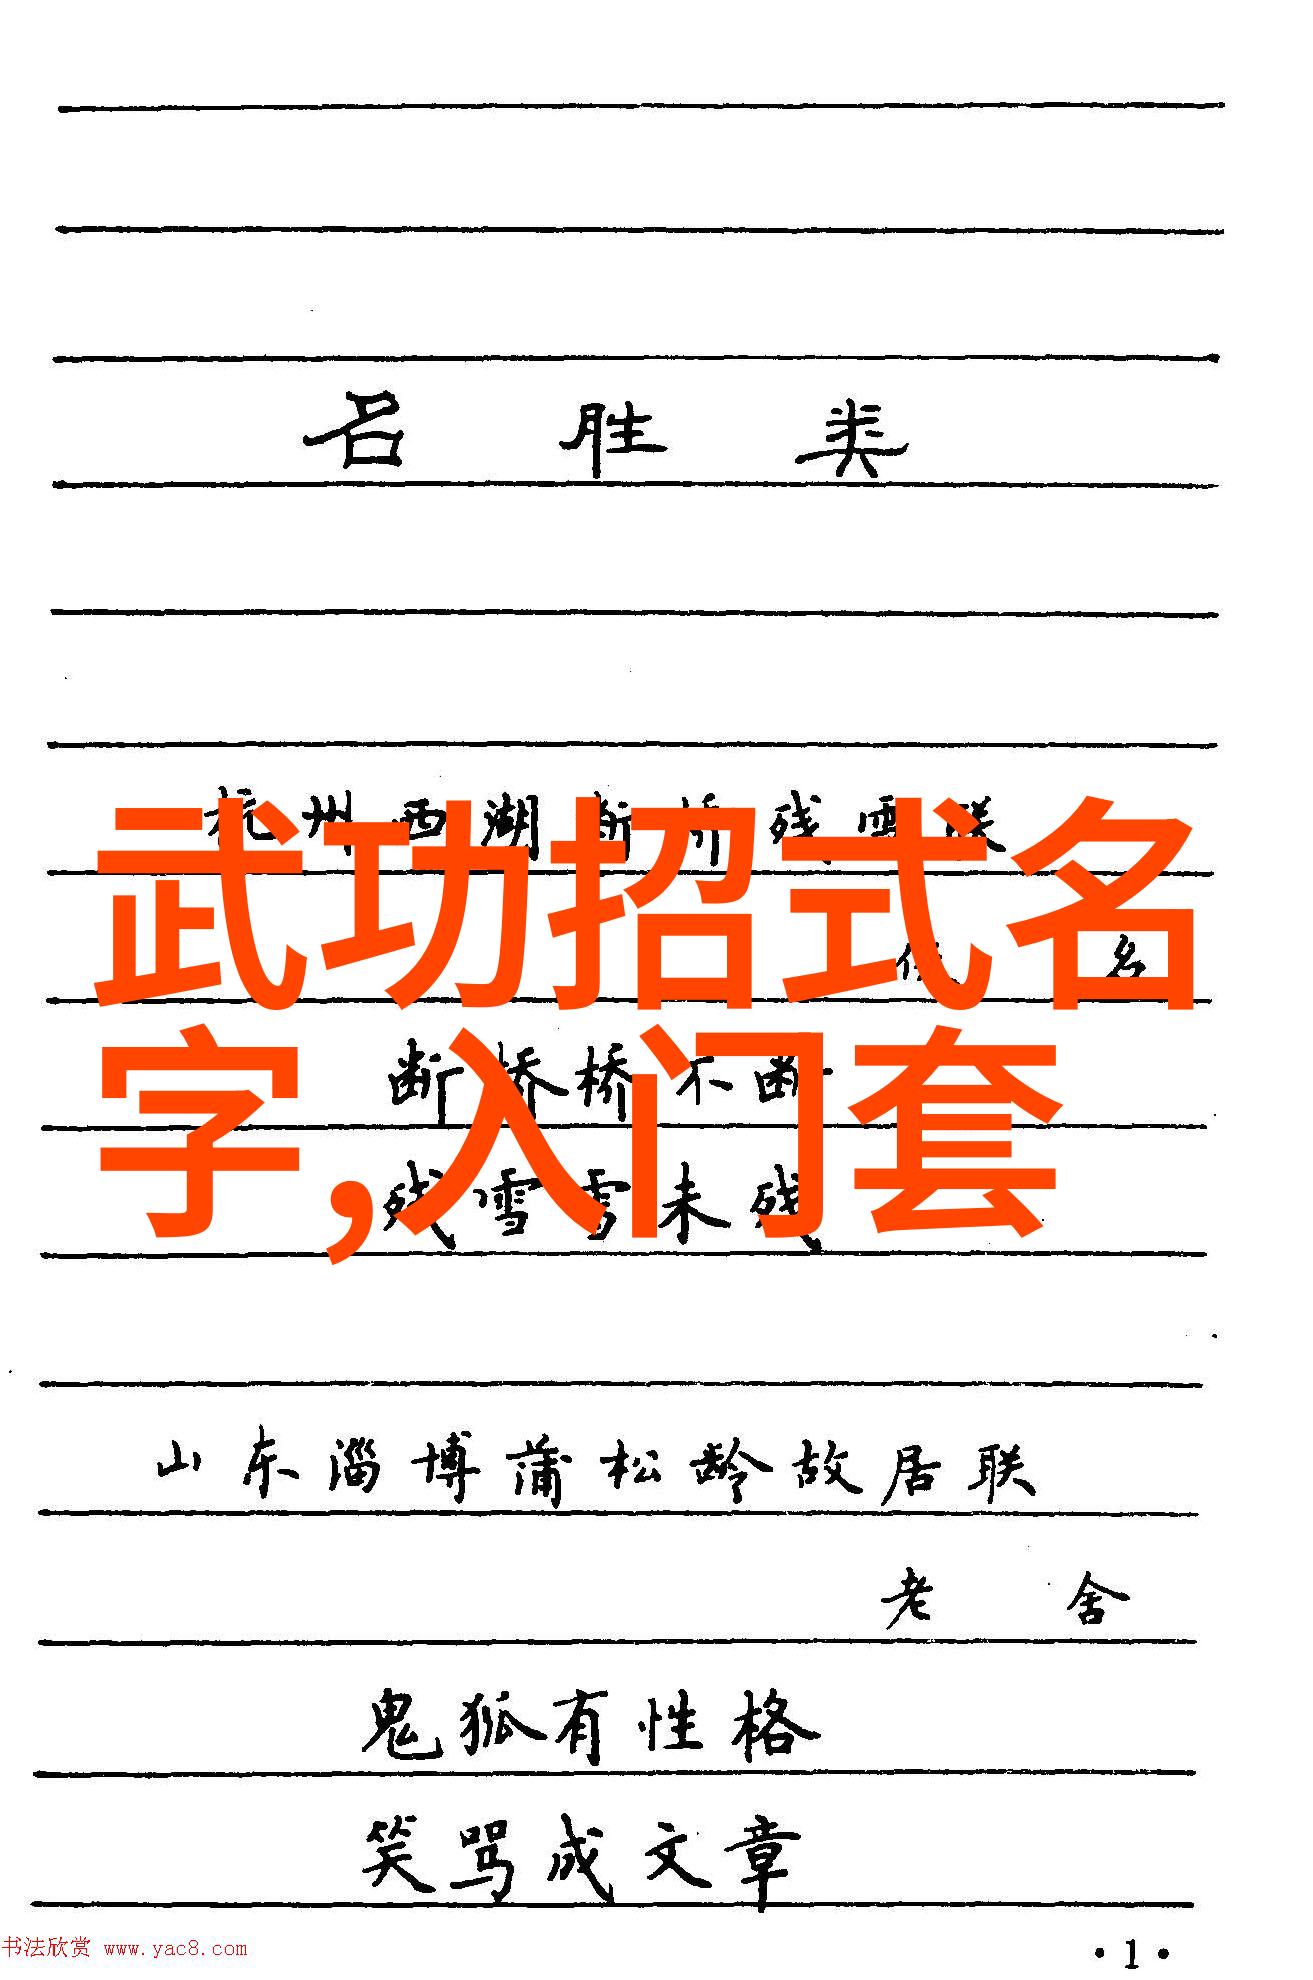 名胜类
杭州西湖断桥残雪联
武功招式名
字,入门套
佚名
断桥桥不断
残雪雪未残
山东淄博蒲松龄故居联
老舍
鬼狐有性格
笑骂成文章
书法欣赏 www.yac8.com
·1·